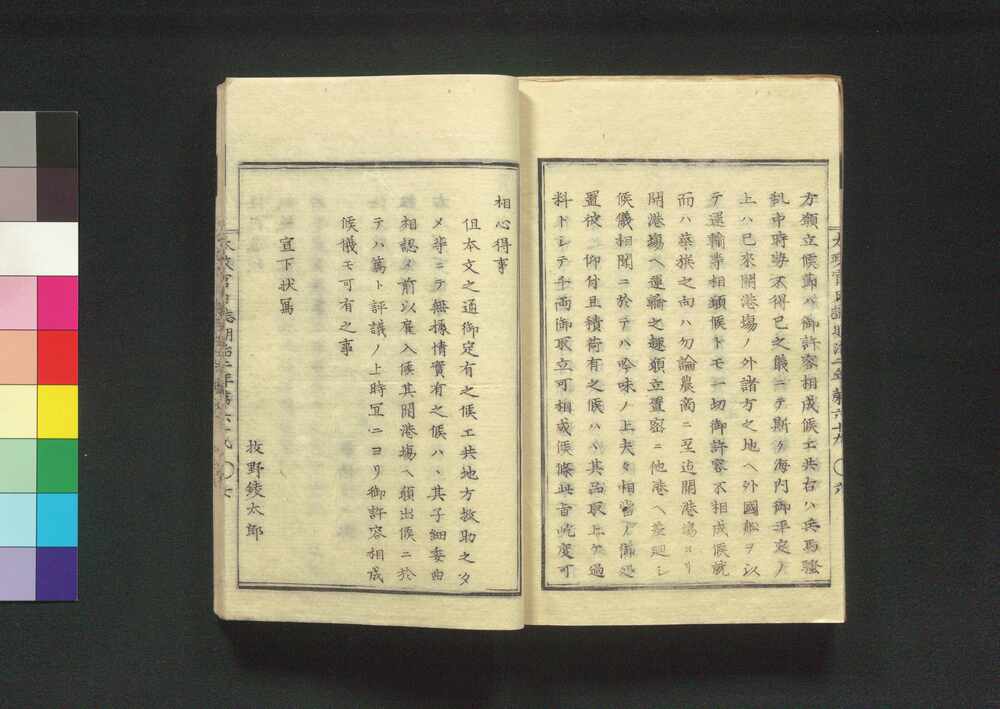 方願立候節ハ御許容相成候エ共右ハ兵馬騒
乱中時勢不得已之儀ニテ斯ク海内御平定ノ
上ハ已來開港塲ノ外諸方之地ヘ外國舩ヲ以
テ運輸等相願候トモ一切御許容不相成候就
而ハ華族之向ハ勿論農商ニ至迄開港塲ヨリ
開港塲ヘ運輸之趣願立置密ニ他港ヘ差廻シ
候儀相聞ニ於テハ吟味ノ上夫々相當ノ御処
置被 仰付且積荷有之候ハヽ其品取上ケ過
料トシテ千両御取立可相成候條此旨屹度可
太政官日誌明治二年第六十九 〇六
相心得事
但本文之通御定有之候エ共地方救助之タ
メ等ニテ無據情實有之候ハヽ其子細委曲
相認メ前以雇入候其開港塲ヘ願出候ニ於
テハ篤ト評議ノ上時冝ニヨリ御許容相成
候儀モ可有之事
宣下状寫
牧野綾太郎
太政官日誌明治二年第六十九 〇七